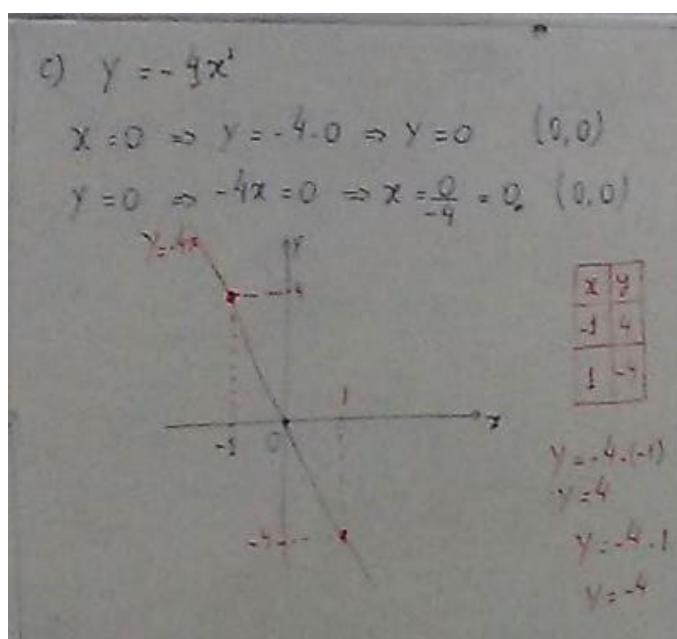 c) y = -4x¹
x = 0 ⇒ y = -4·0 ⇒ y = 0 (0,0)
y = 0 ⇒ -4x = 0 ⇒ x = 0/-4 = 0. (0,0)
y=-4x
y
4
x y
-1 4
1 -4
1
x
-1
0
y = -4·(-1)
y = 4
-4
y = -4·1
y = -4